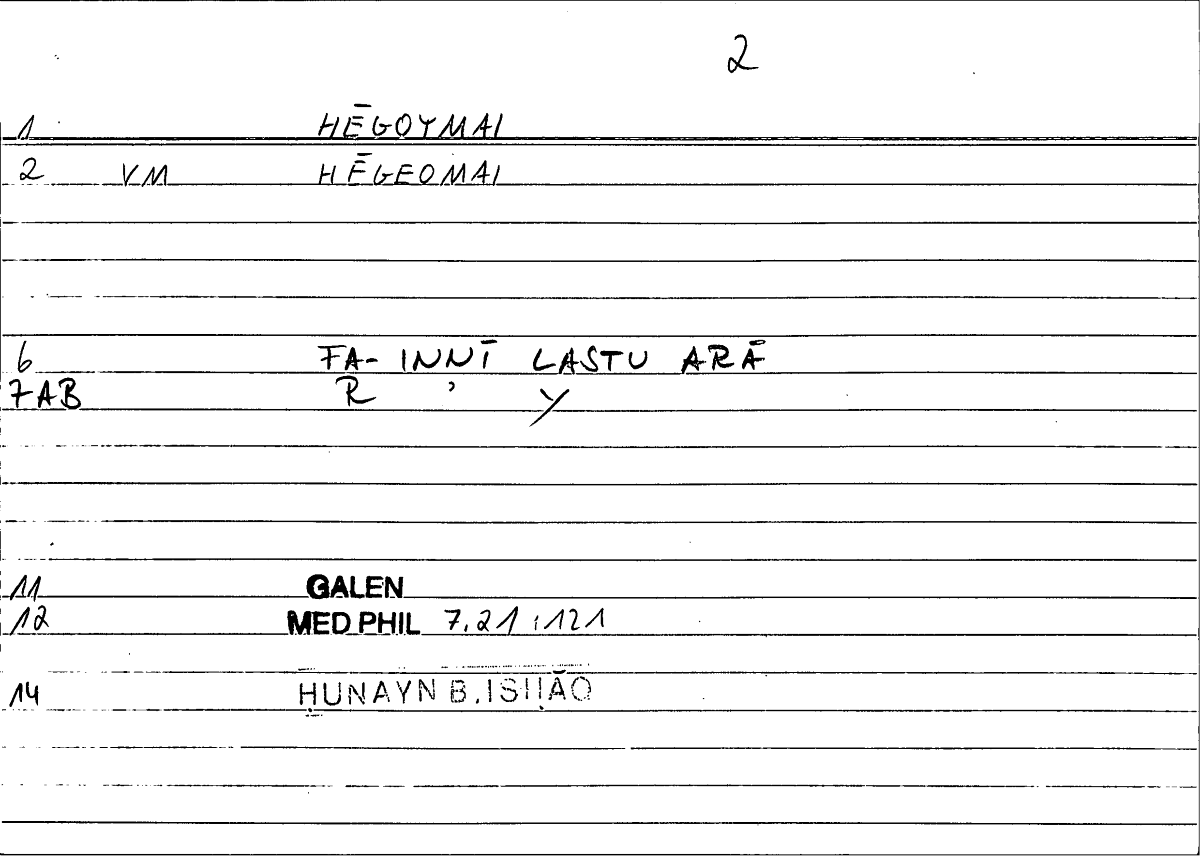 2
1 HĒGOYMAI
2 VM HĒGEOMAI
6 FA- INNĪ LASTU ARĀ
7AB R ʾ Y
11 GALEN
12 MED PHIL 7.21 :121
14 ḤUNAYN B. ISḤĀQ